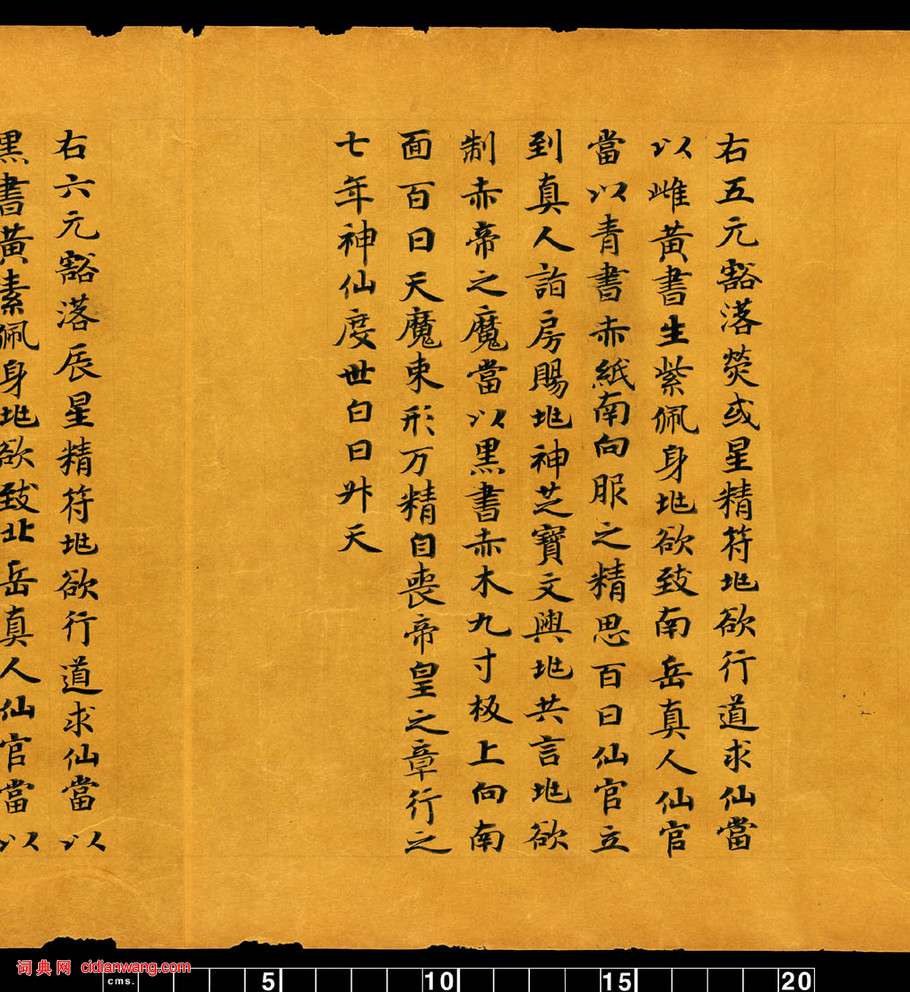 右五元豁落熒或星精符兆欲行道求仙當
以雌黃書生紫佩身兆欲致南岳真人仙官
當以青書赤紙南向服之精思百日仙官立
到真人詣房賜兆神芝寶文與兆共言兆欲
制赤帝之魔當以黑書赤木九寸板上向南
面百日天魔束形万精自喪帝皇之章行之
七年神仙度世白日升天
右六元豁落辰星精符兆欲行道求仙當以
黑書黃素佩身兆欲致北岳真人仙官當以
词典网 cidianwang.com
cms. 5 10 15 20